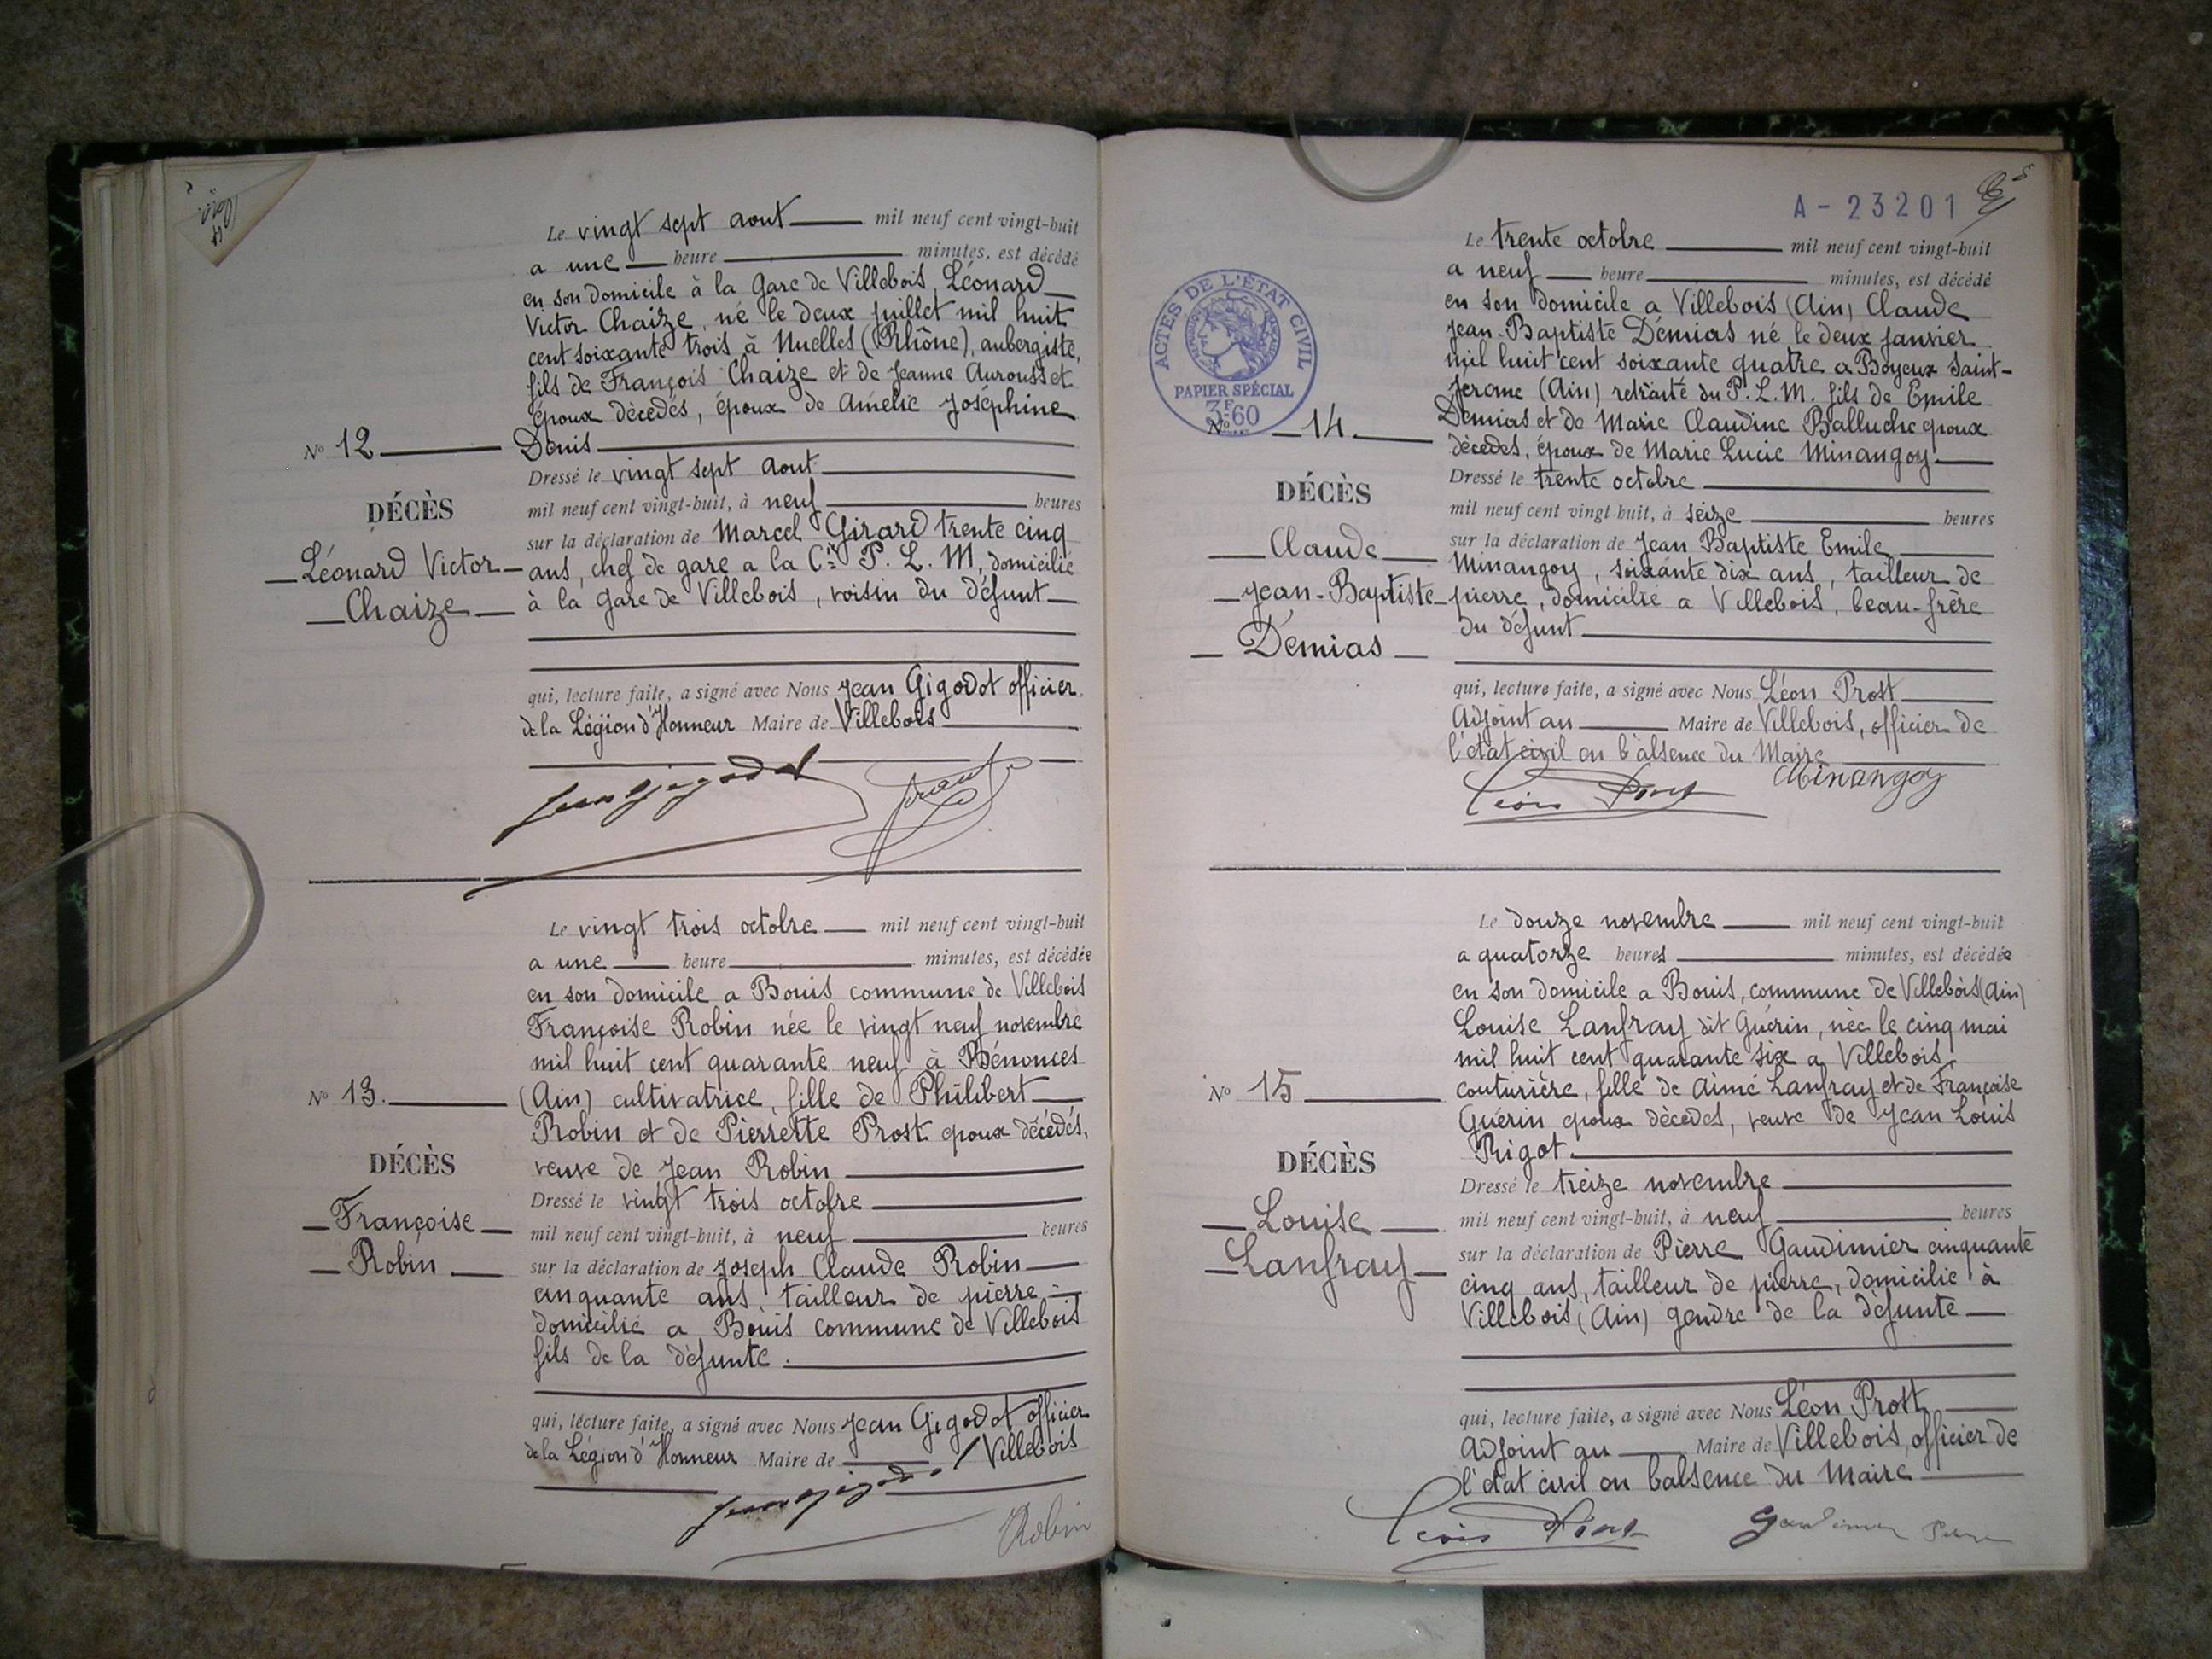 Le vingt sept aout mil neuf cent vingt-huit
a une heure minutes, est décédé
en son domicile à la Gare de Villebois, Léonard
Victor Chaize, né le deux juillet mil huit
cent soixante trois à Nuelles (Rhône), aubergiste,
fils de François Chaize et de Jeanne Aurousset
époux dècedés, époux de Amélie Joséphine
Nº 12 Denis
Dressé le vingt sept aout
DÉCÈS
mil neuf cent vingt-huit, à neuf heures
sur la déclaration de Marcel Girard trente cinq
Léonard Victor
ans, chef de gare a la Cie P. L. M, domicilié
Chaize
à la Gare de Villebois, voisin du défunt
qui, lecture faite, a signé avec Nous Jean Gigodot officier
de la Légion d'Honneur Maire de Villebois
Le vingt trois octobre mil neuf cent vingt-huit
a une heure minutes, est décédée
en son domicile a Bouis commune de Villebois
Françoise Robin née le vingt neuf novembre
mil huit cent quarante neuf à Bénonces
Nº 13. (Ain) cultivatrice, fille de Philibert
Robin et de Pierrette Prost epoux décédés,
DÉCÈS
veuve de Jean Robin
Dressé le vingt trois octobre
Françoise
mil neuf cent vingt-huit, à neuf heures
Robin
sur la déclaration de Joseph Claude Robin
cinquante ans, tailleur de pierre
domicilié a Bouis commune de Villebois
fils de la défunte.
qui, lecture faite, a signé avec Nous Jean Gigodot officier
de la Légion d'Honneur Maire de Villebois
Robin
A - 23201
Le trente octobre mil neuf cent vingt-huit
a neuf heure minutes, est décédé
en son domicile a Villebois (Ain) Claude
Jean-Baptiste Démias né le deux janvier
mil huit cent soixante quatre a Boyeux Saint-
Jerome (Ain) retraité du P. L. M. fils de Emile
Demias et de Marie Claudine Balluche epoux
ACTES DE L'ÉTAT CIVIL
PAPIER SPÉCIAL
3F60
Nº 14.
décedés, époux de Marie Lucie Minangoy
Dressé le trente octobre
DÉCÈS
mil neuf cent vingt-huit, à seize heures
Claude
sur la déclaration de Jean Baptiste Emile
Minangoy, soixante dix ans, tailleur de
Jean-Baptiste
pierre, domicilié a Villebois, beau-frère
Démias
du défunt
qui, lecture faite, a signé avec Nous Léon Prost
Adjoint au Maire de Villebois, officier de
l'état civil en l'absence du Maire
Minangoy
Léon Prost
Le douze novembre mil neuf cent vingt-huit
a quatorze heures minutes, est décédée
en son domicile a Bouis, commune de Villebois (Ain)
Louise Lanfray dit Guérin, née le cinq mai
mil huit cent quarante six a Villebois
Nº 15
couturière, fille de Aimé Lanfray et de Françoise
Guérin epoux décedés, veuve de Jean Louis
DÉCÈS
Rigot.
Dressé le treize novembre
Louise
mil neuf cent vingt-huit, à neuf heures
Lanfray
sur la déclaration de Pierre Gaudimier cinquante
cinq ans, tailleur de pierre, domicilié à
Villebois (Ain) gendre de la défunte
qui, lecture faite, a signé avec Nous Léon Prost
Adjoint au Maire de Villebois, officier de
l'état civil en l'absence du Maire
Léon Prost